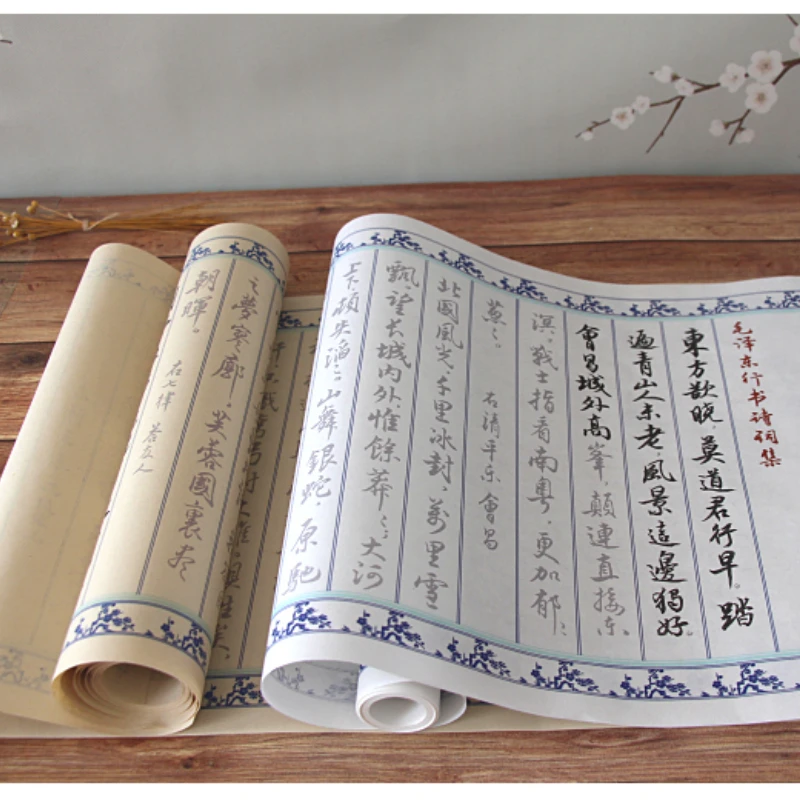 毛泽东行书诗词集
東方欲晓莫道君行早。踏
遍青山人未老，風景這邊獨好。
會昌城外高峯，顛連直接东
溟。战士指看南粤，更加郁〻
葱〻。 右清平乐 會昌
北國風光，千里冰封，萬里雪
飄。望长城内外惟餘莽〻；大河
上下，頓失滔〻。山舞銀蛇，原馳
之夢寥廓，芙蓉國裏尽
朝暉。
右七律 答友人